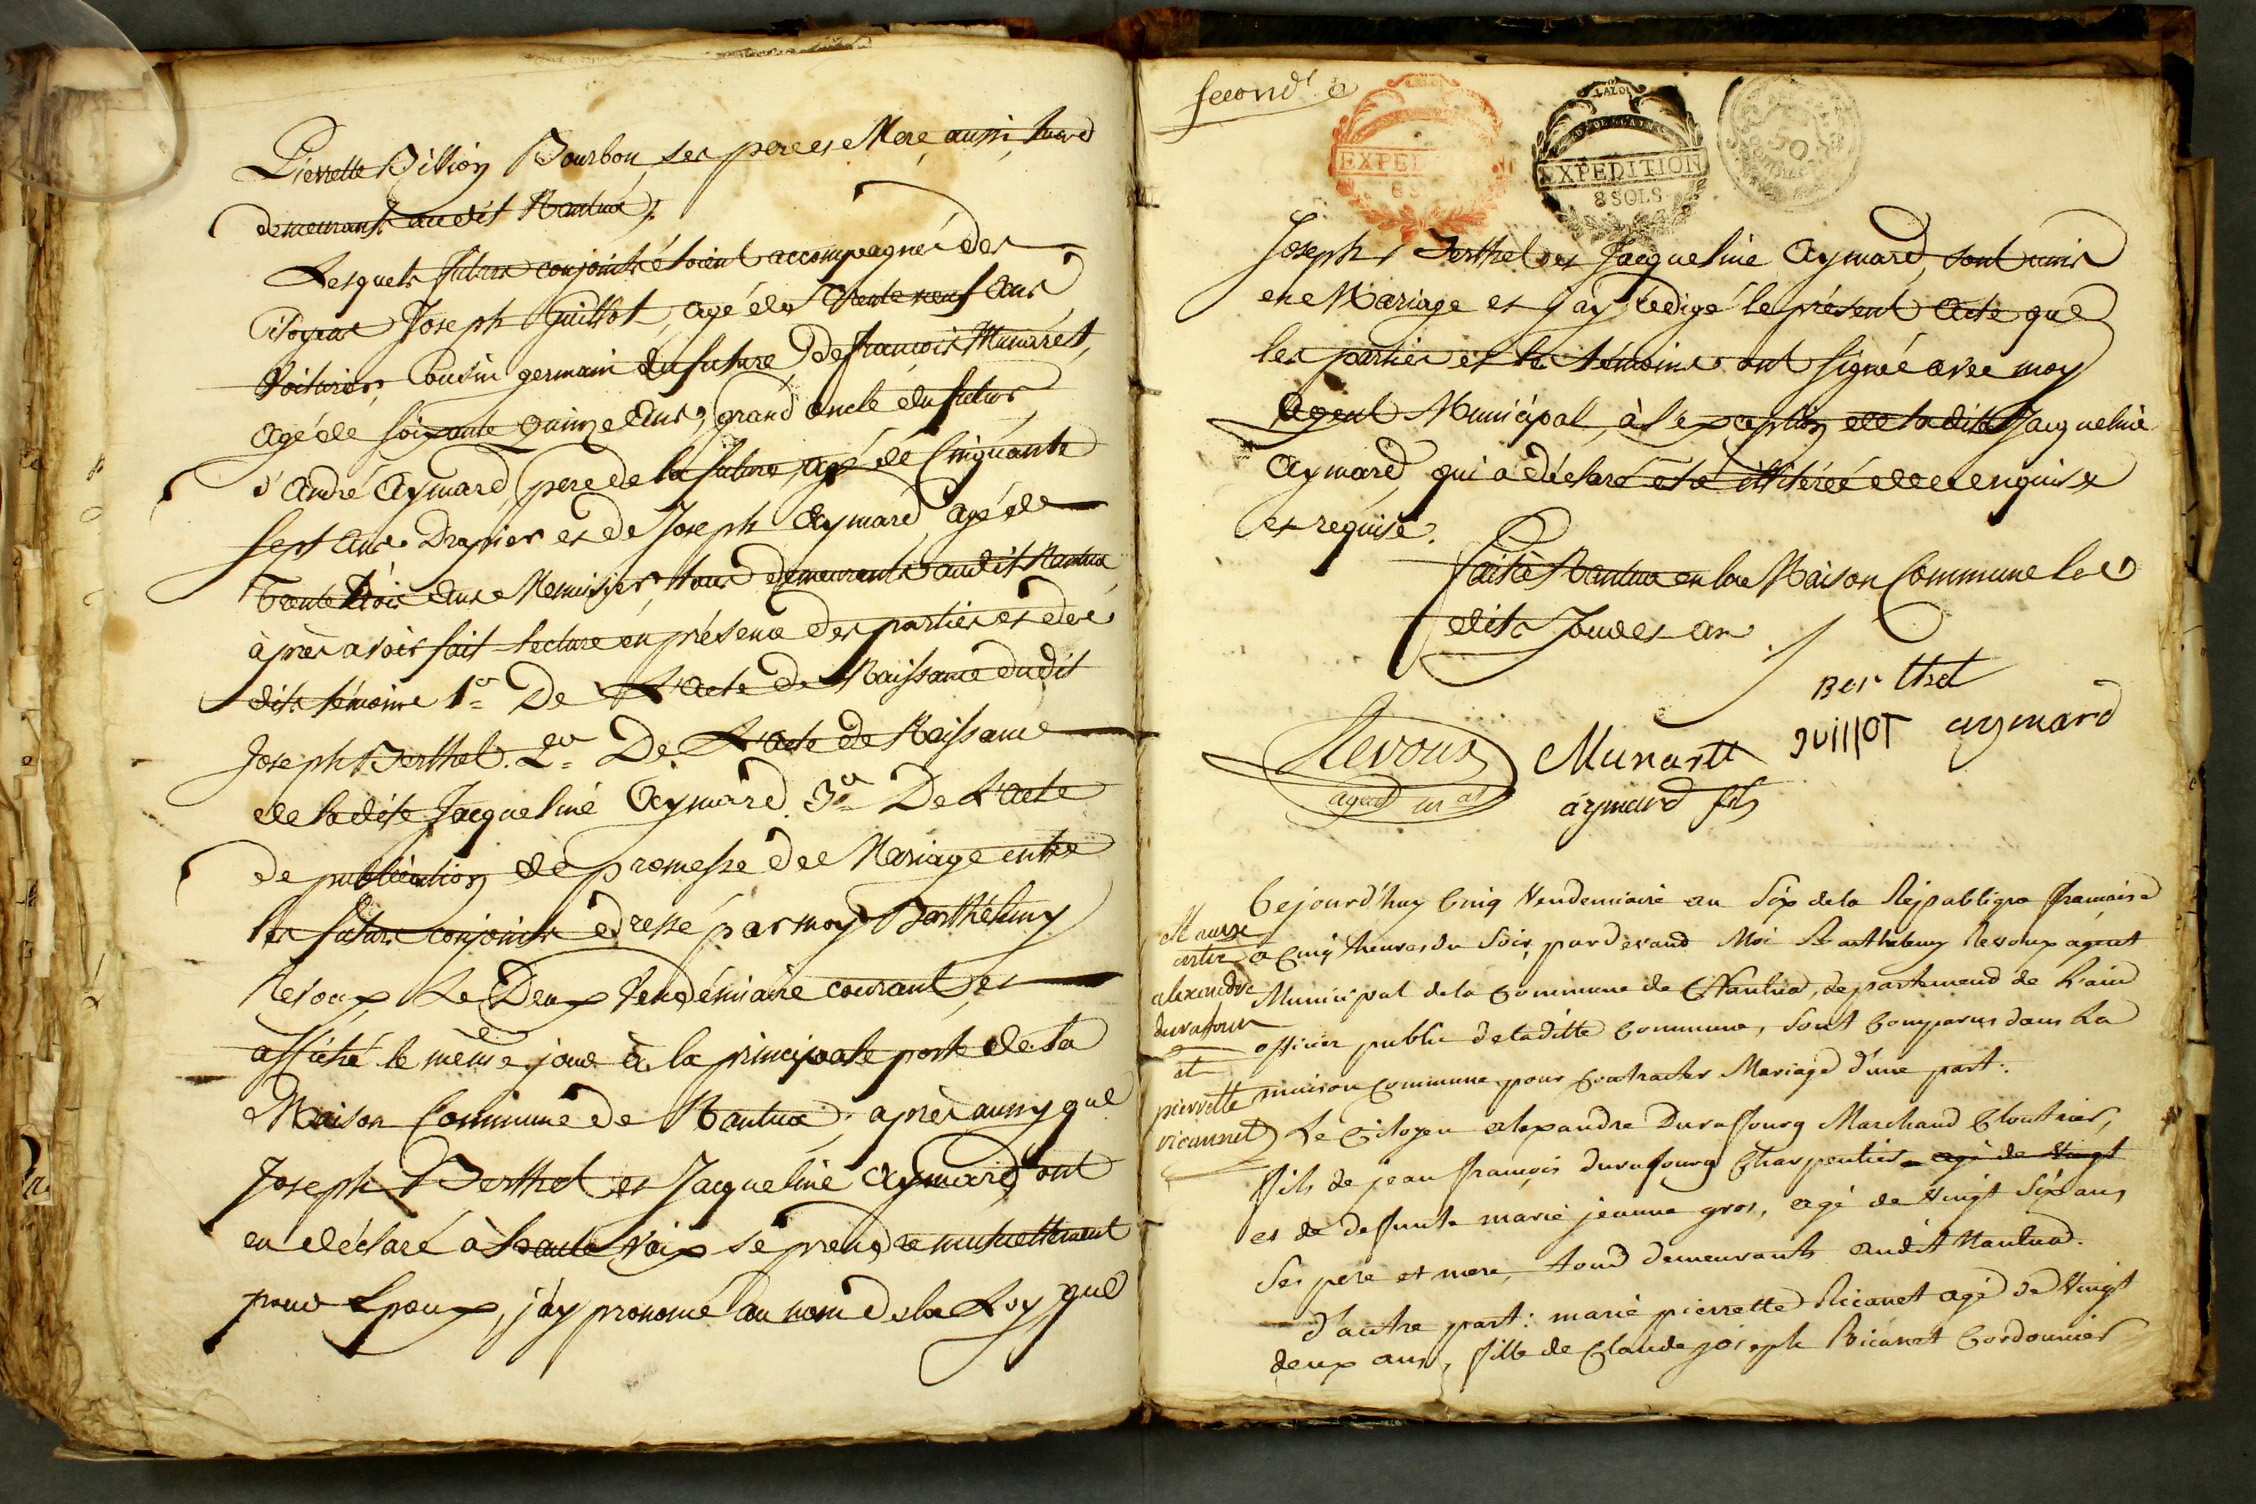 Pierrette Billion Bourbon ses pere et Mere aussi tous
demeurants au dit Nantua;
Lesquels futurs conjoints étoient accompagnés des
Citoyens Joseph Guillot, agé de trente neuf ans
Voiturier, Cousin germain du future De françois Munaret,
agé de soixante quinze ans, grand oncle du futur,
d'André Aymard, pere de la future, agé de Cinquante
sept ans Drapier et de Joseph Aymard, agé de
trente trois ans Menuisier, tous demeurants audit Nantua
après avoir fait lecture en présence des parties et des
dits témoins 1o De L'acte de Naissance dudit
Joseph Berthet. 2o De L'acte de Naissance
de ladite Jacqueline Aymard. 3o De L'acte
de publication de promesse de Mariage entre
les futurs conjoints dressé par moy Barthélemy
Revoux, Le Deux Vendémiaire courant, et
affiché le même jour à la principale porte de la
Maison Commune de Nantua, après aussy que
Joseph Berthet et Jacqueline Aymard ont
eu déclaré à haute voix se prendre mutuellement
pour Epoux, j'ay prononcé au nom de la Loy que
second
EXPED
EXPEDITION
8 SOLS
50
Joseph Berthet et Jacqueline Aymard, sont unis
en Mariage et j'ay rédigé le présent Acte que
les parties et les témoins ont signé avec moy
Agent Municipal, à l'exception de ladite Jacqueline
Aymard qui a déclaré être illitérée de ce enquise
et requise.
fait à Nantua en la Maison Commune les
dits Jour et an
Berthet
Revoux Munarett guillot aymard
agent m al aymard fils
Mariage
entre
alexandre
durafour
et
pierrette
ricannet
Cejourd'huy Cinq Vendemiaire an Six de la République française
a Cinq heures du Soir, pardevand Moi Barthelemy Revoux agent
Municipal de la Commune de Nantua, departement de L'ain
officier public de laditte Commune, sont Comparus dans La
maison Commune pour Contracter Mariage d'une part:
Le Citoyen alexandre Durafourg Marchand Cloutrier,
fils de jean françois durafourg Charpentier agé de vingt
et de defunte marie jeanne gros, agé de Vingt Six ans
Ses pere et mere, tous demeurants audit Nantua.
D'autre part: marie pierrette Ricanet agé de Vingt
deux ans, fille de Claude joseph Ricanet Cordonnier